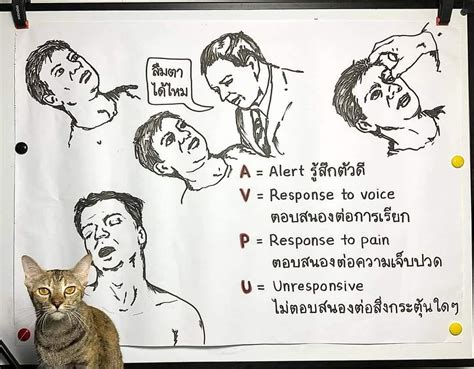 ลืมตา
ได้ไหม
A = Alert รู้สึกตัวดี
V = Response to voice
ตอบสนองต่อการเรียก
P = Response to pain
ตอบสนองต่อความเจ็บปวด
U = Unresponsive
ไม่ตอบสนองต่อสิ่งกระตุ้นใดๆ